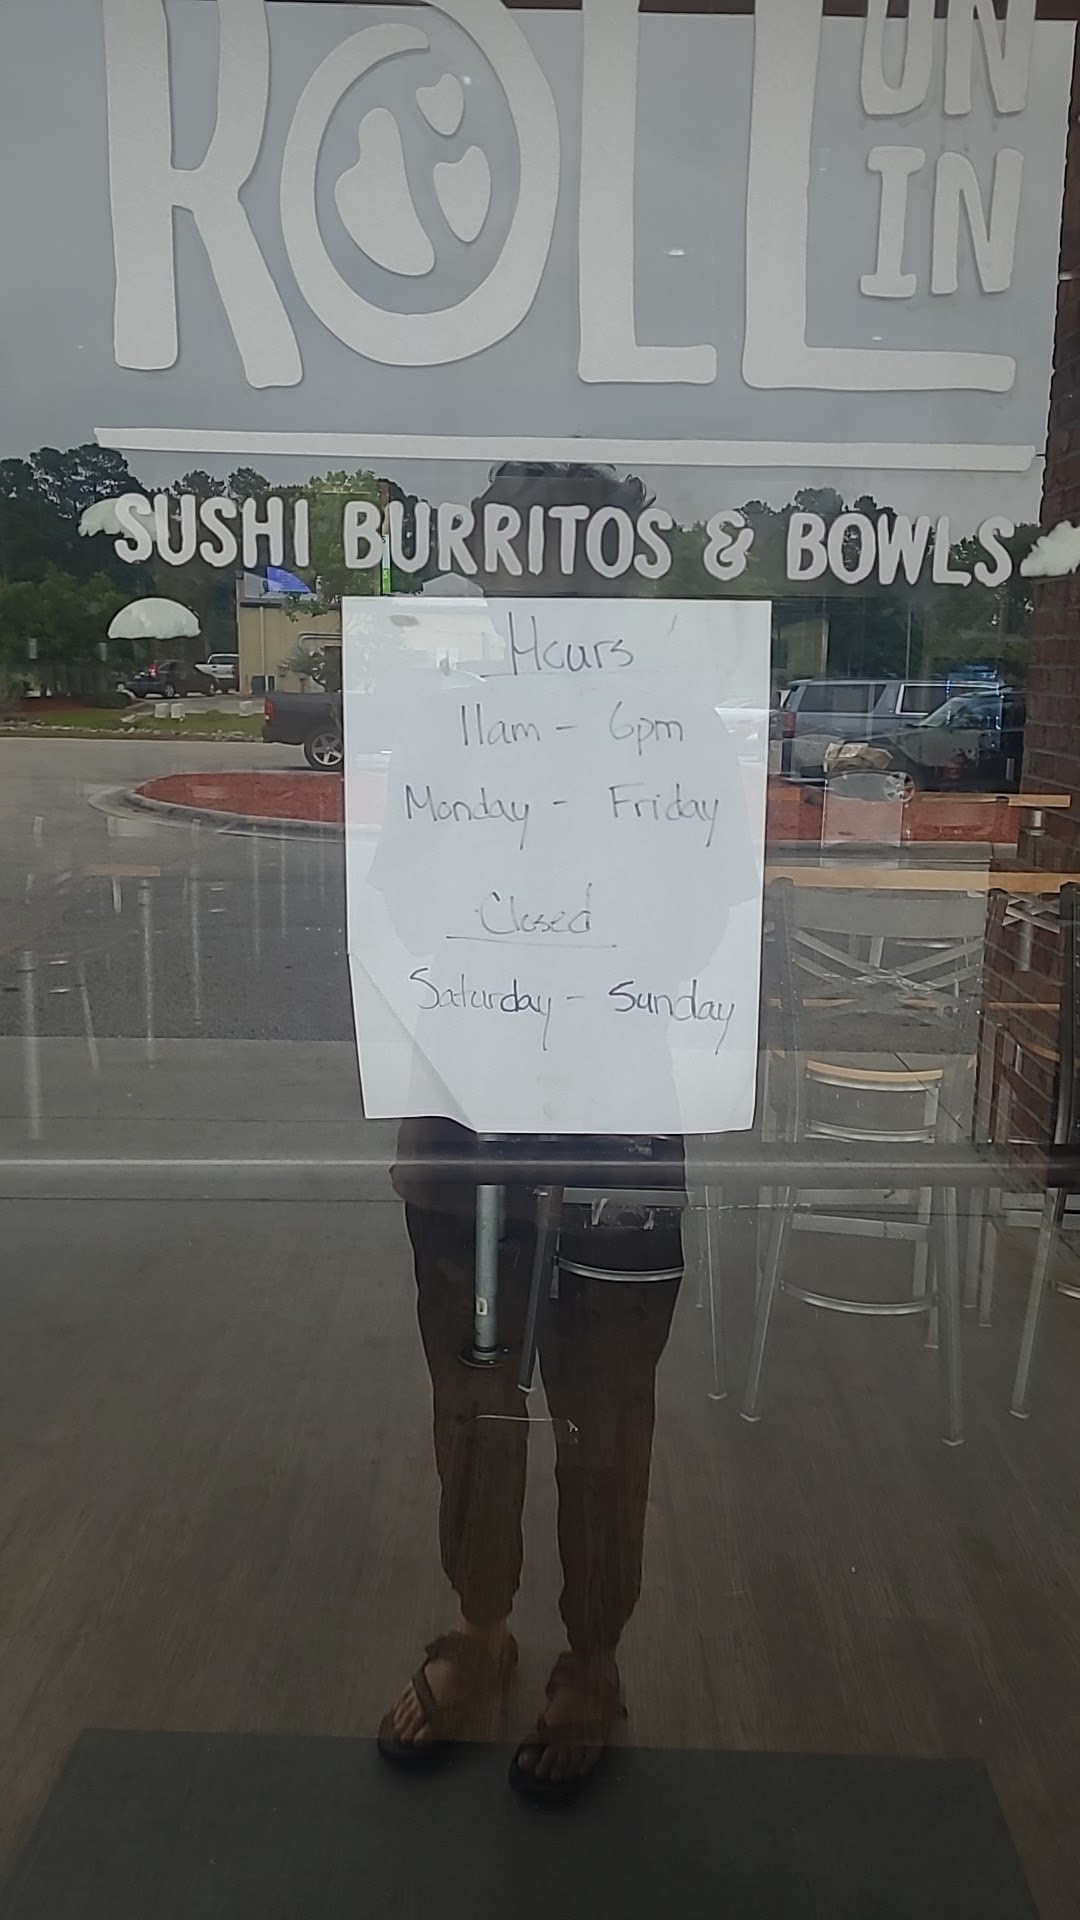 ROLL
ON
IN
SUSHI BURRITOS & BOWLS
Hours
11am - 6pm
Monday - Friday
Closed
Saturday - Sunday